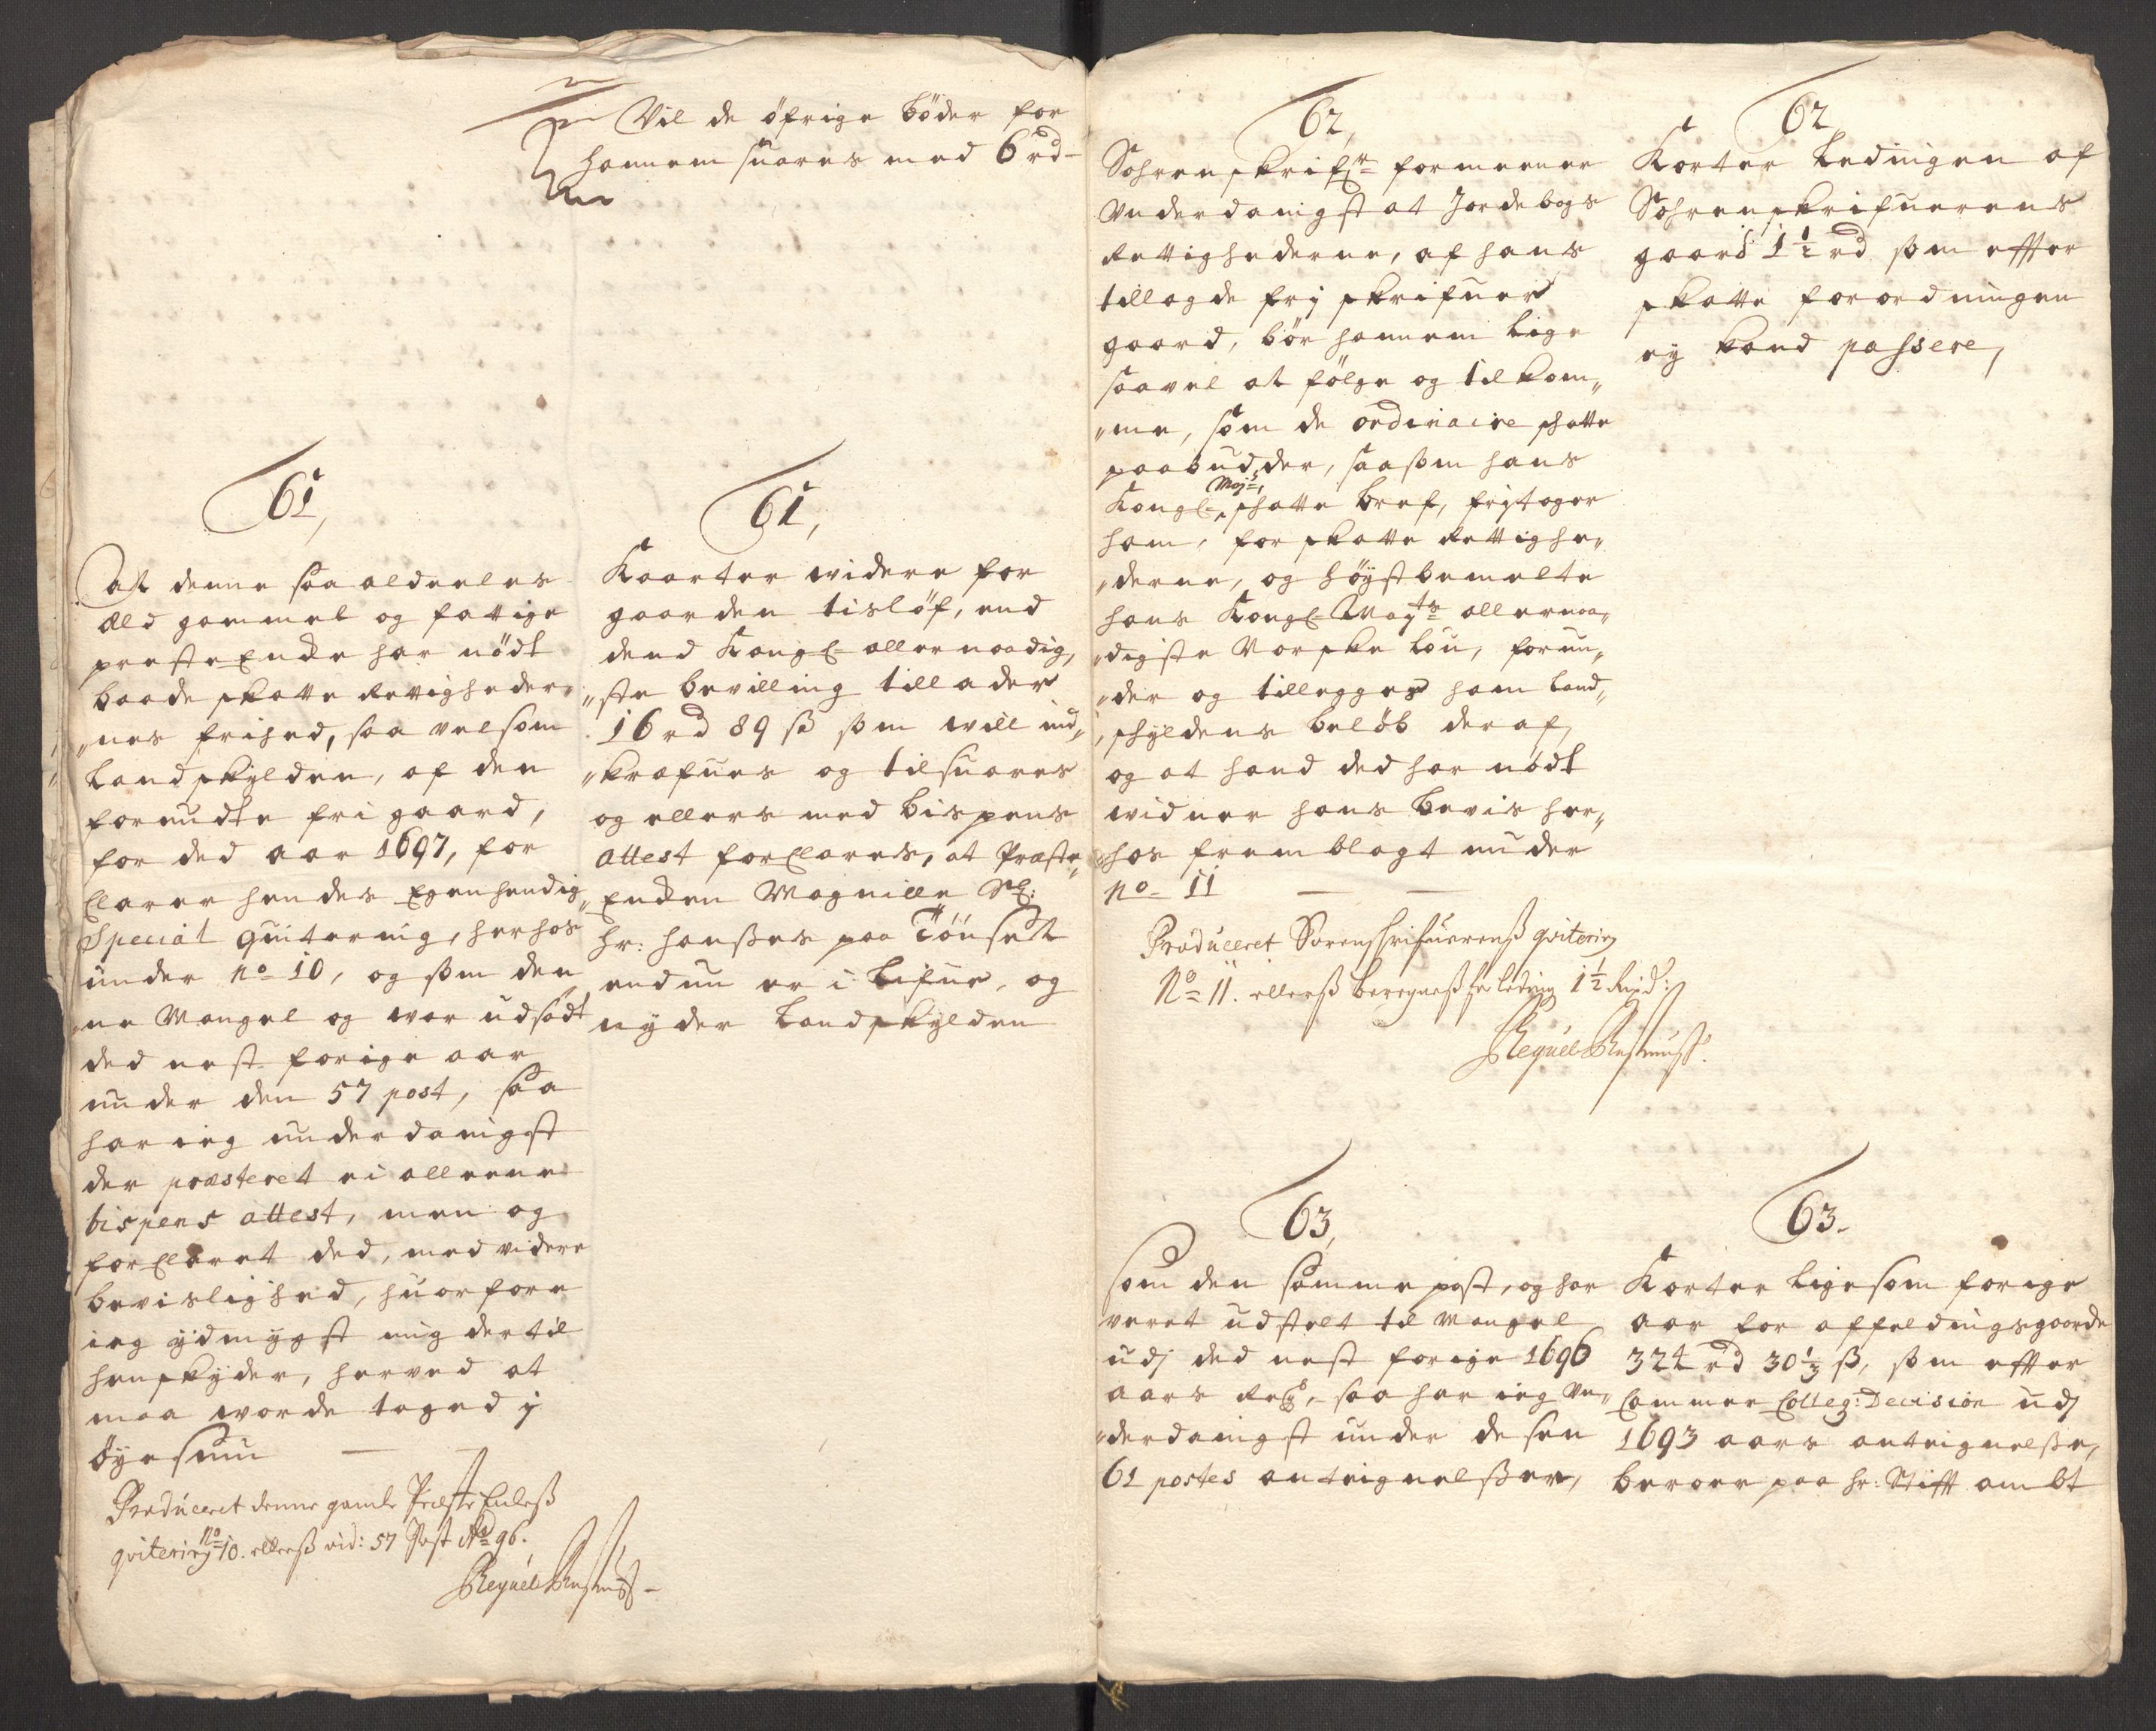 Vil de öfrige böder for
hannem suares med 6 rd
61,
At denne saa aldeeles
Æld gammel og fattige
presteEncke har nödt
baade skatte Rettigheder,,
,,nes frihed, saa velsom
Landskylden, af den
forundte fri gaard,
for ded aar 1697, for
Clarer hendes Egenhendig,,
Special quitering, herhos
under no 10, og som den,,
,,ne Mangel og war udsadt
ded nest forige aar
under den 57 post, saa
har ieg underdanigst
der præsteret ei alleene
bispens attest, men og
forClaret ded, med videre
bevislighed, huorfore
ieg ydmygst mig dertil
henskyder, herved at
maa worde taged j
öyesiun
Producéret denne gamle Præste Enkeß
qvitering No 10. ellerß vid: 57 Post Ao 96.
61,
Kaarter widere for
gaarden tislöf, end
dend Kongl allernaadig,,
,,ste bevilling tillader
16 rd 89 ß som will ind,,
,,krafues og tilsuares
og ellers med bispens
attest forClares, at Præste,,
Encken Magnille Sl:
hr: hanßes paa Tönset
endnu er i Lifue, og
nyder Landskylden
62,
Sohrenskrifr formeener
Vnderdanigst at Jordebogs
Rettighederne, af hans
tillagde frj skrifuer
gaard, bör hannem lige
saavel at fölge og tilkom,,
,,me, som de ordinaire skatte
paabudder, saasom hans
Kongl Mays skatte bref, frytager
ham, for skatte Rettighe,,
,,derne, og höystbemelte
hans Kongl Mayts allernaa,,
,,digste Norske Lou, forun,,
,,der og tillegger ham Land,,
,,skyldens belöb deraf,
og at hand ded har nödt
widner hans bevis her,,
,,hos fremblagt under
no 11
Producéret Sorenskrifuerenß qvitering
No 11. ellerß beregneß for leding 1½ Rixd:
62
Korter Ledingen af
Sohrenskrifuerens
gaard 1½ rd som effter
skatte forordningen
ey kand passere,
63,
som den samme post, og har
veret udstelt til Mangel
udj ded nest forige 1696
aars Regs, saa har ieg Vn,,
,,derdanigst under desen
61 postes anteignelßer,
63.
Korter ligesom forige
aar for affeldingsgaarde
324 rd 30½ ß, som effter
Cammer Colleg: Decision udj
1693 aars anteignelße,
beroer paa hr: Stifft ambt